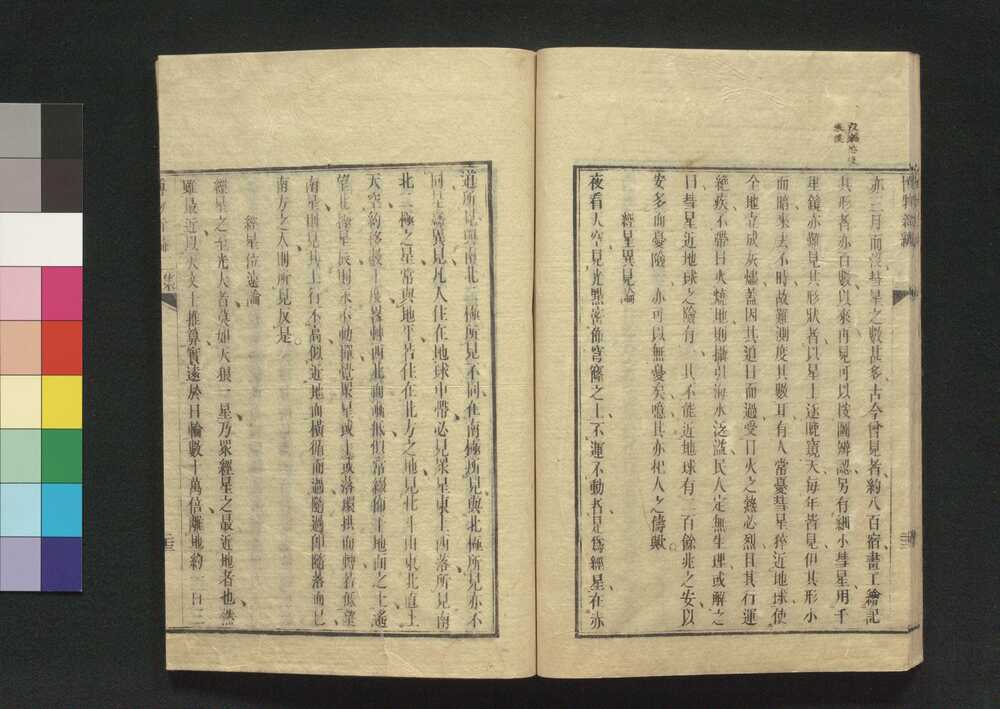 亦三月而沒彗星之數甚多古今曾見者約八百宿畫工繪記
其形者亦百數以來再見可以按圖辨認另有細小彗星用千
里鏡亦難見其形狀者以星上逐晚窺天每年皆見但其形小
而暗來去不時故難測度其數耳有人常憂彗星猝近地球使
全地立成灰燼蓋因其追日而過受日火之熱必烈且其行運
絕疾不帶日火燒地則攝引海水泛溢民人定無生理或解之
曰彗星近地球之險有一其不能近地球有二百餘兆之安以
安多而憂險一亦可以無憂矣噫其亦杞人之儔歟
經星異見論
夜看人空見光點密佈穹窿之上不運不動者是為經星在赤
道所見與南北二極所見不同在南極所見與北極所見亦不
同
異見凡人住在地球中帶必見眾星東上西落所見南
北二極之星常與地平若住在北方之地見北斗由東北直上
天空約
轉西北而
地面之上遙
望北
辰則永不動
眾星或上或落環拱而轉若低望
南星則見其上行不高似近地面橫循而過隨過即隨落而已
南方之人則所見反是
經星位遠論
經星之至光大者莫如天狼一星乃眾經星之最近地者也然
雖最近以天文士推算實遠於日輪數十萬倍離地約二百三